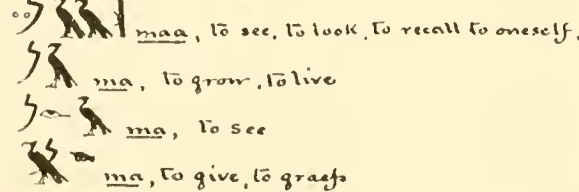 𓌳𓄿𓄿 maa, to see, to look, to recall to oneself,
𓌳𓄿 ma, to grow, to live
𓌳𓁹𓄿 ma, to see
ma, to give, to grasp